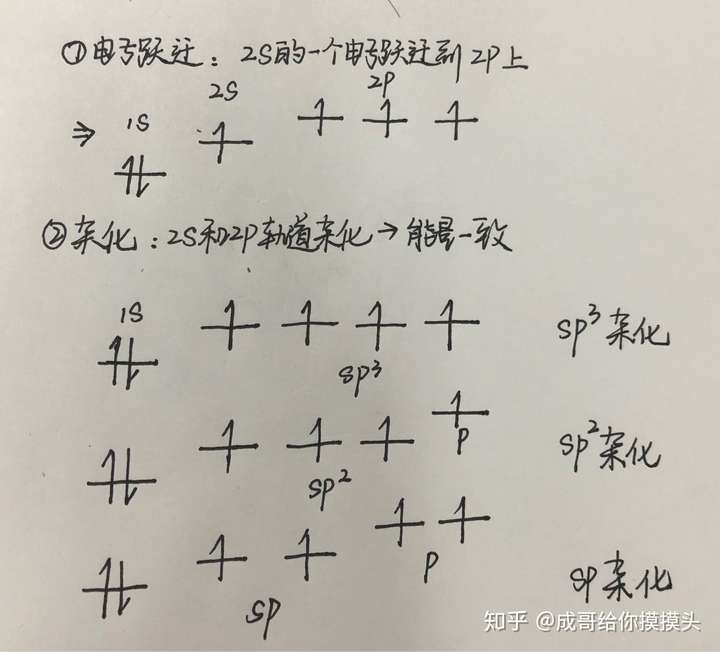 ①电子跃迁：2S的一个电子跃迁到2P上
2S 2P
⇒ 1S
②杂化：2S和2P轨道杂化→能量一致
1S
sp³ sp³杂化
P
sp² sp²杂化
P
sp sp杂化
知乎 @成哥给你摸摸头